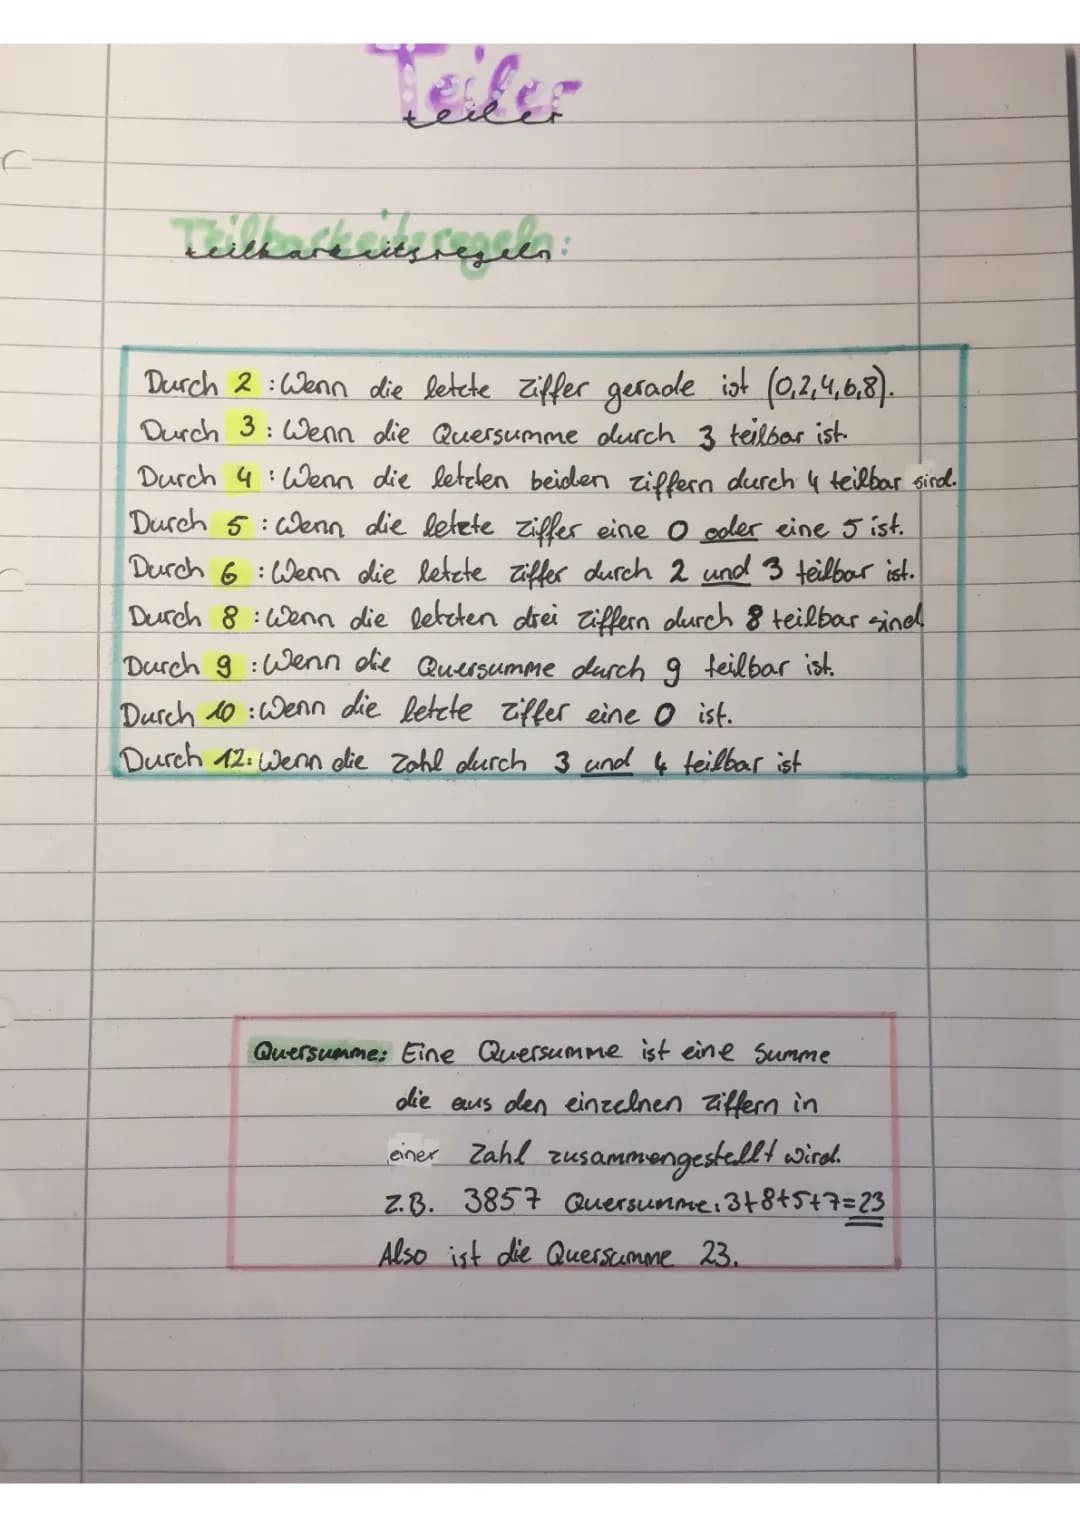 Teiler
teiler
Teilbarkeitsregeln:
teilbarkeitsregeln
Durch 2 : Wenn die letzte Ziffer gerade ist (0,2,4,6,8).
Durch 3 : Wenn die Quersumme durch 3 teilbar ist.
Durch 4 : Wenn die letzten beiden Ziffern durch 4 teilbar sind.
Durch 5 : Wenn die letzte Ziffer eine 0 oder eine 5 ist.
Durch 6 : Wenn die letzte Ziffer durch 2 und 3 teilbar ist.
Durch 8 : Wenn die letzten drei Ziffern durch 8 teilbar sind
Durch 9 : Wenn die Quersumme durch 9 teilbar ist.
Durch 10 : Wenn die letzte Ziffer eine 0 ist.
Durch 12: Wenn die Zahl durch 3 und 4 teilbar ist
Quersumme: Eine Quersumme ist eine Summe
die aus den einzelnen Ziffern in
einer Zahl zusammengestellt wird.
Z.B. 3857 Quersumme: 3+8+5+7=23
Also ist die Quersumme 23.